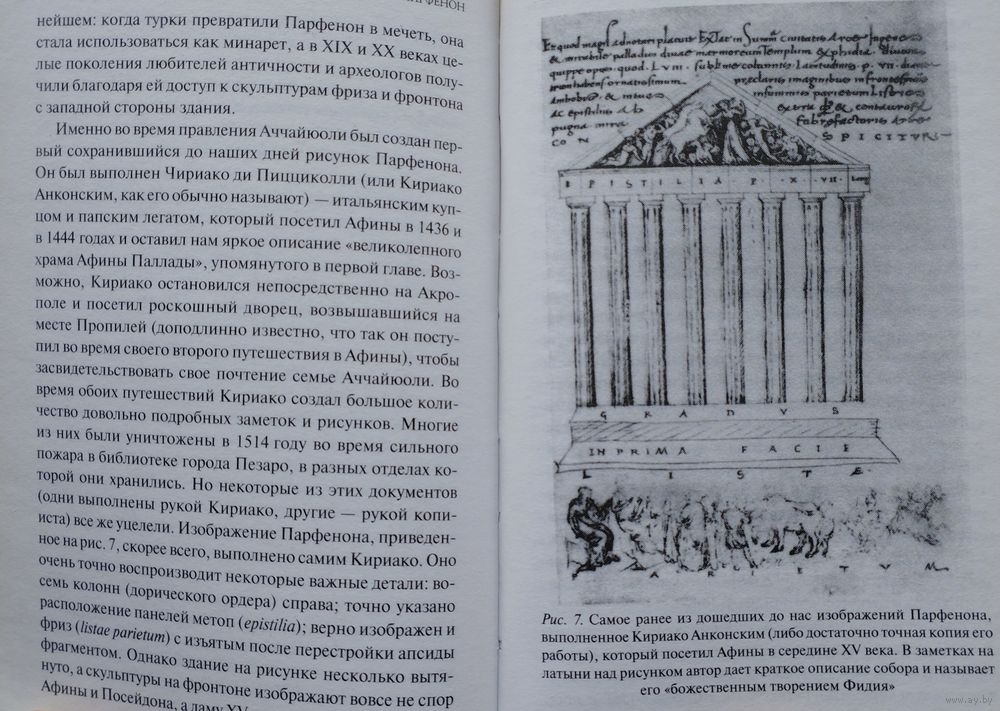 АРФЕНОН
нейшем: когда турки превратили Парфенон в мечеть, она
стала использоваться как минарет, а в XIX и XX веках це-
лые поколения любителей античности и археологов полу-
чили благодаря ей доступ к скульптурам фриза и фронтона
с западной стороны здания.
Именно во время правления Аччайюоли был создан пер-
вый сохранившийся до наших дней рисунок Парфенона.
Он был выполнен Чириако ди Пицциколли (или Кириако
Анконским, как его обычно называют) — итальянским куп-
цом и папским легатом, который посетил Афины в 1436 и
в 1444 годах и оставил нам яркое описание «великолепного
храма Афины Паллады», упомянутого в первой главе. Воз-
можно, Кириако остановился непосредственно на Акро-
поле и посетил роскошный дворец, возвышавшийся на
месте Пропилей (доподлинно известно, что так он посту-
пил во время своего второго путешествия в Афины), чтобы
засвидетельствовать свое почтение семье Аччайюоли. Во
время обоих путешествий Кириако создал большое коли-
чество довольно подробных заметок и рисунков. Многие
из них были уничтожены в 1514 году во время сильного
пожара в библиотеке города Пезаро, в разных отделах ко-
торой они хранились. Но некоторые из этих документов
(одни выполнены рукой Кириако, другие — рукой копи-
иста) все же уцелели. Изображение Парфенона, приведен-
ное на рис. 7, скорее всего, выполнено самим Кириако. Оно
очень точно воспроизводит некоторые важные детали: во-
семь колонн (дорического ордера) справа; точно указано
расположение панелей метоп (epistilia); верно изображен и
фриз (listae parietum) с изъятым после перестройки апсиды
фрагментом. Однако здание на рисунке несколько вытя-
нуто, а скульптуры на фронтоне изображают вовсе не спор
Афины и Посейдона, а даму XV
Et quod magis adnotari placuit Extat in Summa civitatis Arce Ingens
et mirabile palladis divae marmoreum Templum
quippe opus quod LVIII sublime columnis
praeclaris imaginibus in
ac epistilis
pugna mira
CON SPICITUR
EPISTILIA P. X. VII. Long
GRADVS
IN PRIMA FACIE
LISTÆ
PARIETVM
Рис. 7. Самое ранее из дошедших до нас изображений Парфенона,
выполненное Кириако Анконским (либо достаточно точная копия его
работы), который посетил Афины в середине XV века. В заметках на
латыни над рисунком автор дает краткое описание собора и называет
его «божественным творением Фидия»
www.ay.by